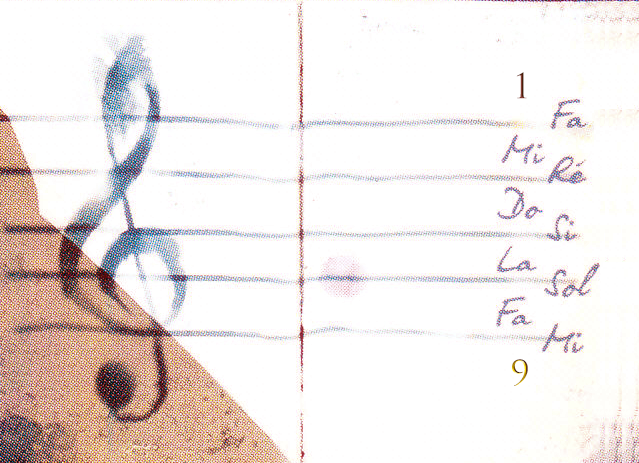 1
Fa
Mi
Ré
Do
Si
La
Sol
Fa
Mi
9